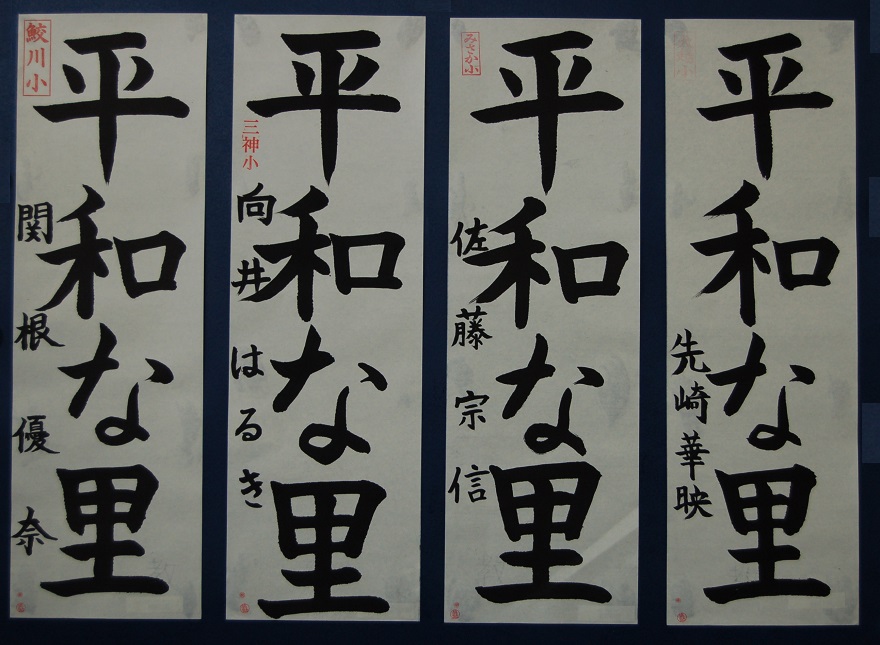 平和な里
鮫川小
関根優奈
平和な里
三神小
向井はるき
平和な里
みさか小
佐藤宗信
平和な里
先崎華映